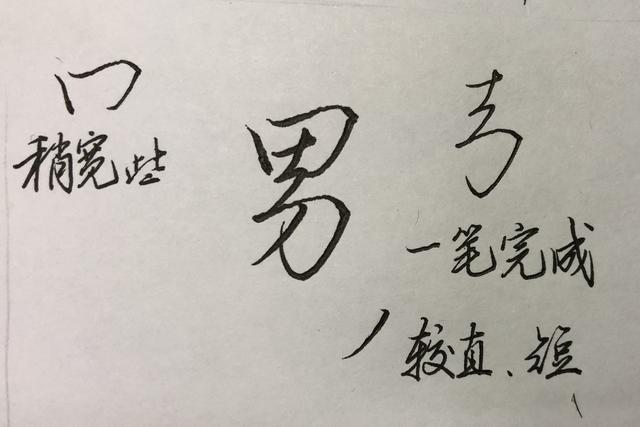 稍宽些
男
一笔完成
较直、短